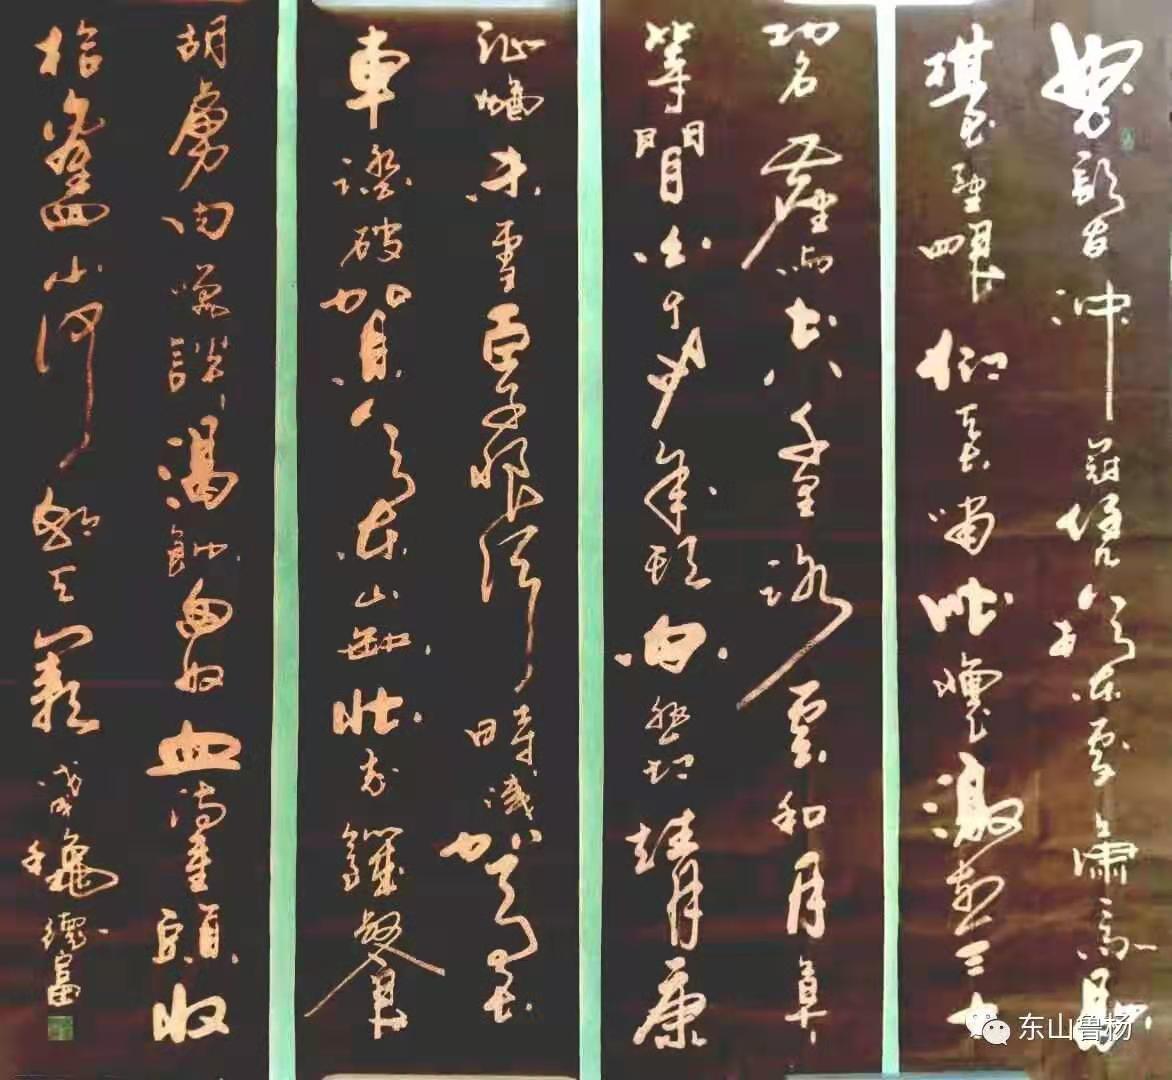 怒髮冲冠憑欄處瀟雨歇
抬望眼仰天長嘯壯懷激烈三十
功名塵與土八千里路雲和月莫
等閒白了少年頭空悲切靖康
耻猶未雪臣子恨何時滅駕長
車踏破賀蘭山缺壯志饑餐
胡虜肉笑談渴飲匈奴血待重頭收
拾舊山河朝天闕
德富
东山鲁杨